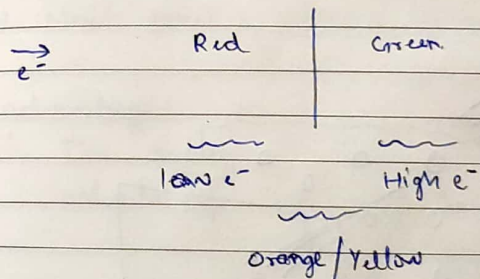 Red Green
e⁻
low e⁻ High e⁻
Orange/Yellow